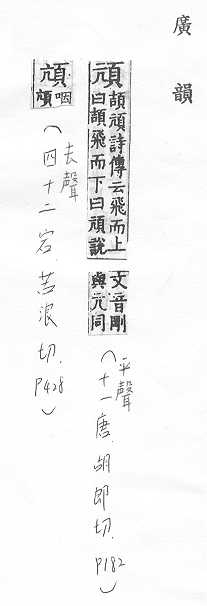 廣韻
頏 頡頏詩傳云飛而上
曰頡飛而下曰頏說
文音剛
與亢同
(平聲
十一唐.胡郎切.
P182)
頏 咽
頏
(去聲
四十二宕.苦浪切.
P428)